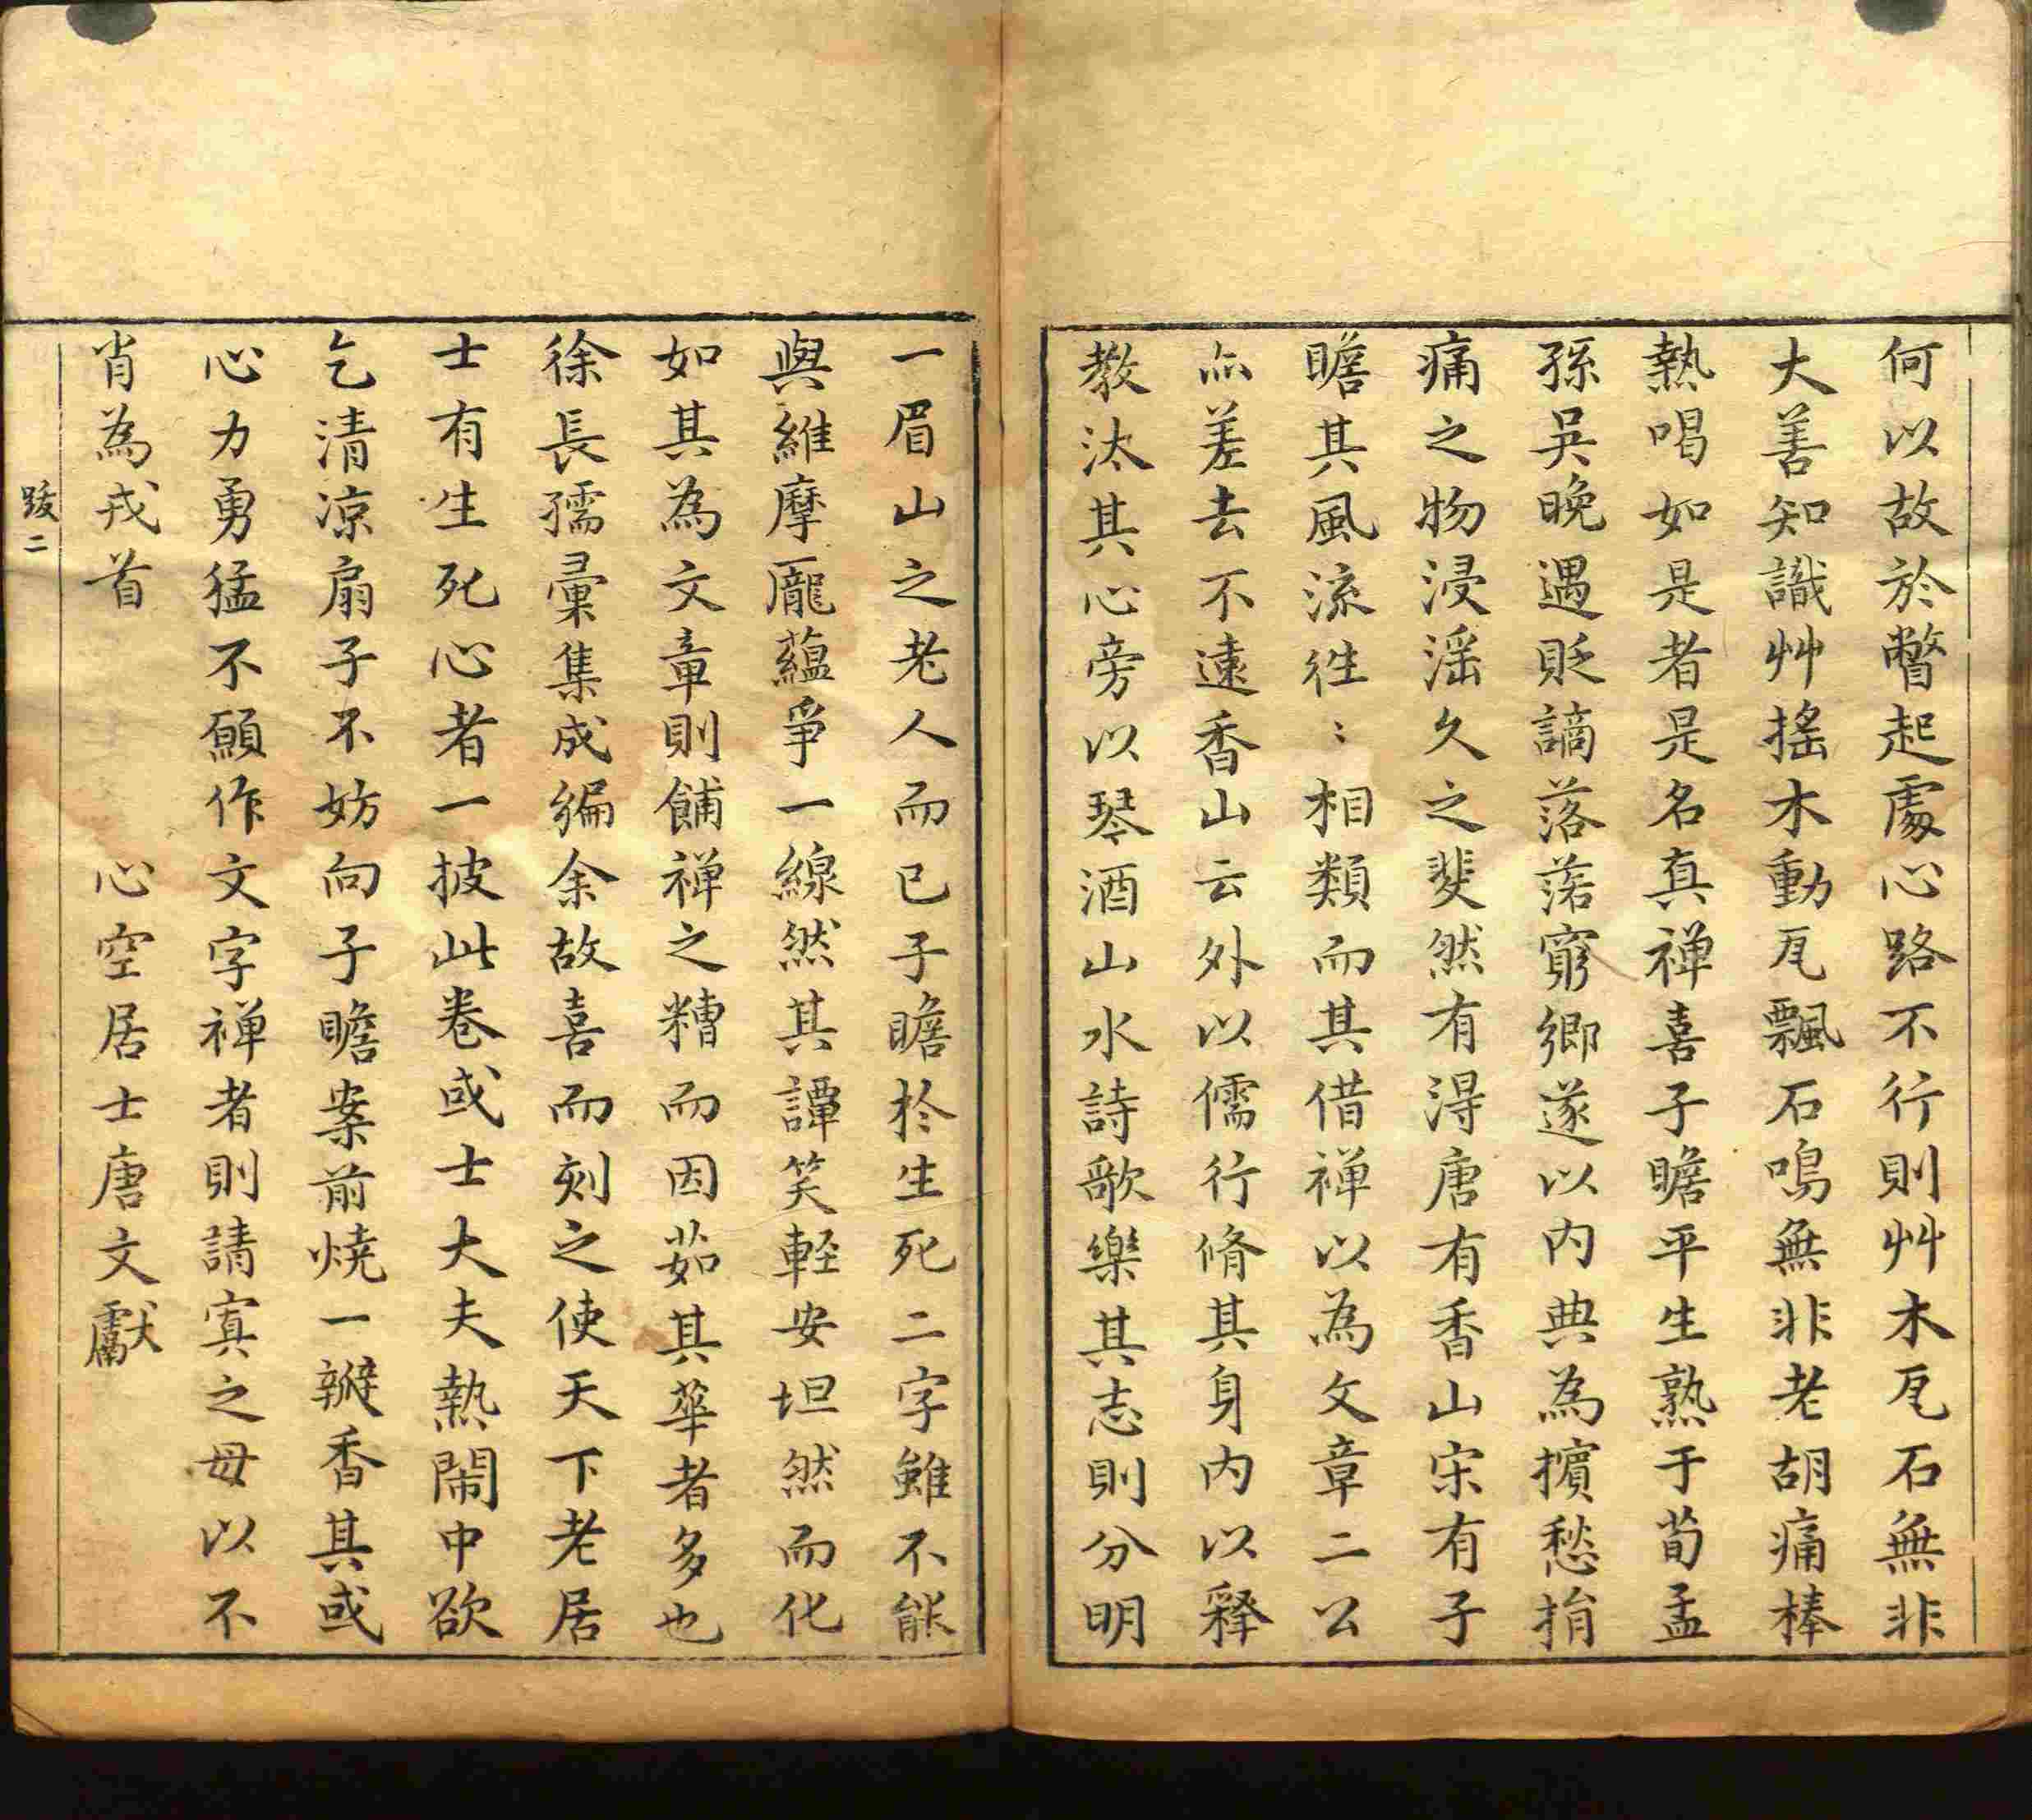 何以故於瞥起處心路不行則艸木瓦石無非
大善知識艸搖木動瓦飄石鳴無非老胡痛棒
熱喝如是者是名真禅喜子瞻平生熟于荀孟
孫吳晚遇貶謫落落窮鄉遂以內典為擯愁捐
痛之物浸淫久之斐然有得唐有香山宋有子
瞻其風流徃〻相類而其借禅以為文章二公
亦差去不遠香山云外以儒行脩其身內以釋
教汰其心旁以琴酒山水詩歌樂其志則分明
一眉山之老人而已子瞻於生死二字雖不能
與維摩龐蘊爭一線然其譚笑輕安坦然而化
如其為文章則餔禅之糟而因茹其華者多也
徐長孺彙集成編余故喜而刻之使天下老居
士有生死心者一披此卷或士大夫熱鬧中欲
乞清凉扇子不妨向子瞻案前燒一瓣香其或
心力勇猛不願作文字禅者則請寘之毋以不
肖為戎首 心空居士唐文獻
跋二